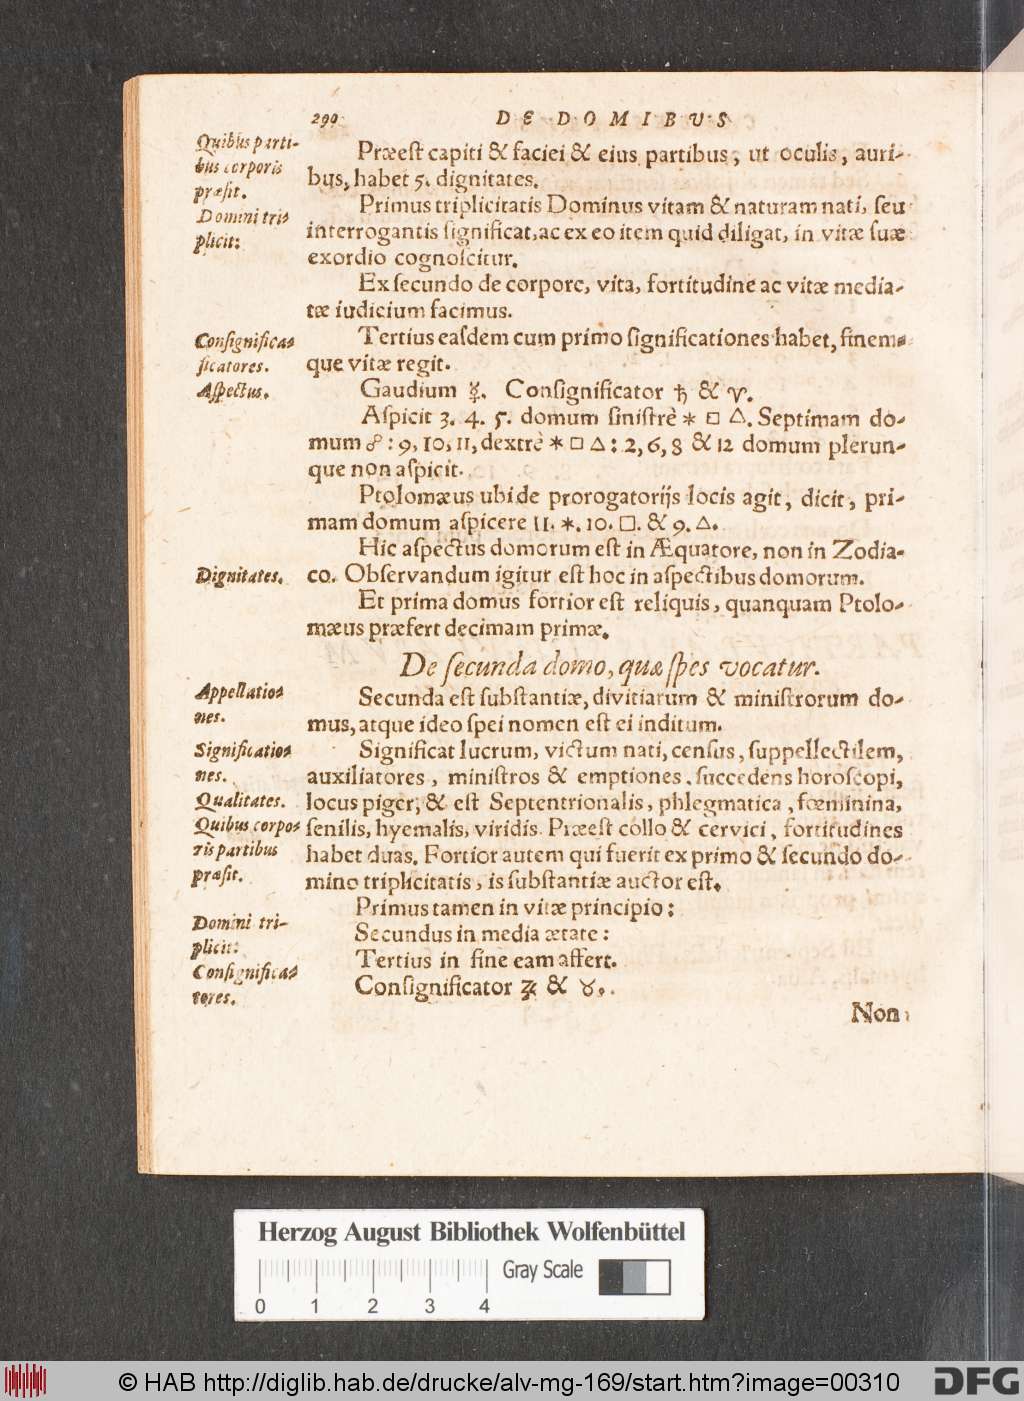 290 DE DOMIBUS
Quibus parti-
bus corporis
præsit.
Præest capiti & faciei & eius partibus, ut oculis, auri-
bus, habet 5. dignitates.
Domini tri-
plicit:
Primus triplicitatis Dominus vitam & naturam nati, seu
interrogantis significat, ac ex eo item quid diligat, in vitæ suæ
exordio cognoscitur.
Ex secundo de corpore, vita, fortitudine ac vitæ media-
tæ iudicium facimus.
Consignifica-
ficatores.
Tertius easdem cum primo significationes habet, finem-
que vitæ regit.
Aspectus.
Gaudium ☿. Consignificator ♄ & ♈.
Aspicit 3. 4. 5. domum sinistrè ⚹ □ △. Septimam do-
mum ☍ : 9, 10, 11, dextrè ⚹ □ △ : 2, 6, 8 & 12 domum plerun-
que non aspicit.
Ptolomæus ubi de prorogatorijs locis agit, dicit, pri-
mam domum aspicere 11. ⚹. 10. □. & 9. △.
Hic aspectus domorum est in Æquatore, non in Zodia-
Dignitates.
co. Observandum igitur est hoc in aspectibus domorum.
Et prima domus fortior est reliquis, quanquam Ptolo-
mæus præfert decimam primæ.
De secunda domo, quæ spes vocatur.
Appellatio-
nes.
Secunda est substantiæ, divitiarum & ministrorum do-
mus, atque ideo spei nomen est ei inditum.
Significatio-
nes.
Qualitates.
Quibus corpo-
ris partibus
præsit.
Significat lucrum, victum nati, census, suppellectilem,
auxiliatores, ministros & emptiones, succedens horoscopi,
locus piger, & est Septentrionalis, phlegmatica, fœminina,
senilis, hyemalis, viridis. Præest collo & cervici, fortitudines
habet duas. Fortior autem qui fuerit ex primo & secundo do-
mino triplicitatis, is substantiæ auctor est.
Domini tri-
plicit:
Primus tamen in vitæ principio:
Secundus in media ætate:
Tertius in fine eam affert.
Consignifica-
tores.
Consignificator ♃ & ♉.
Non
Herzog August Bibliothek Wolfenbüttel
Gray Scale
0 1 2 3 4
© HAB http://diglib.hab.de/drucke/alv-mg-169/start.htm?image=00310
DFG